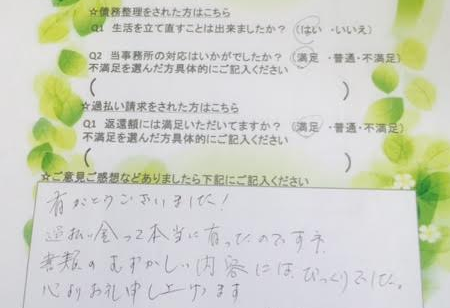 ☆債務整理をされた方はこちら
Q1 生活を立て直すことは出来ましたか? (はい ・いいえ)
Q2 当事務所の対応はいかがでしたか? (満足 ・普通・不満足)
不満足を選んだ方具体的にご記入ください
( )
☆過払い請求をされた方はこちら
Q1 返還額には満足いただいてますか? (満足 ・普通・不満足)
不満足を選んだ方具体的にご記入ください
( )
☆ご意見ご感想などありましたら下記にご記入ください
有がとうございました!
過払い金って本当に有ったのですネ
書類のむずかしい内容にはびっくりでした。
心よりお礼申し上げます